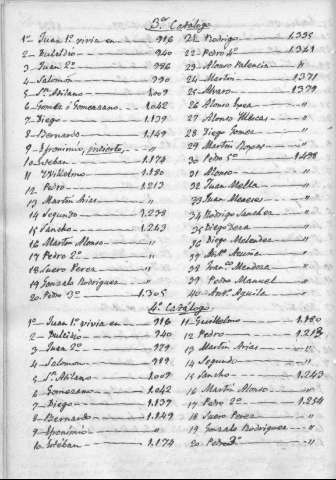 3er Catálogo
1º Juan 1º vivia en 916
2 Dulcidio 940
3 Juan 2º 986
4 Salomón 990
5 Sn. Atilano 1.009
6 Gomez ó Gomesano 1.042
7 Diego 1.139
8 Bernardo 1.149
9 Geronimo, incierto, "
10 Esteban 1.174
11 Guillelmo 1.180
12 Pedro 1.213
13 Martin Arias "
14 Segundo 1.238
15 Sancho 1.263
16 Martin Alonso "
17 Pedro 2º "
18 Suero Perez "
19 Gonzalo Rodriguez "
20 Pedro 3º 1.305
21 Rodrigo 1.335
22 Pedro 4º 1.341
23 Alonso Valencia "
24 Martin 1.371
25 Alvaro 1.379
26 Alonso "
27 Alonso Illescas "
28 Diego Gomez "
29 Martin "
30 Pedro 5º 1.438
31 Alonso "
32 Juan Mella "
33 Juan Meneses "
34 Rodrigo Sanchez "
35 Diego Deza "
36 Diego Melendez "
37 Antº Acuña "
38 Franco Mendoza "
39 Pedro Manuel "
40 Antº Aguila "
4º Catálogo
1º Juan 1º vivia en 916
2 Dulcidio 940
3 Juan 2º 979
4 Salomon 989
5 Sn. Atilano 1.009
6 Gomesano 1.042
7 Diego 1.139
8 Bernardo 1.149
9 Geronimo "
10 Estéban 1.174
11 Guillelmo 1.180
12 Pedro 1.213
13 Martin Arias "
14 Segundo "
15 Sancho 1.243
16 Martin Alonso "
17 Pedro 2º 1.254
18 Suero Perez "
19 Gonzalo Rodriguez "
20 Pedro 3º "